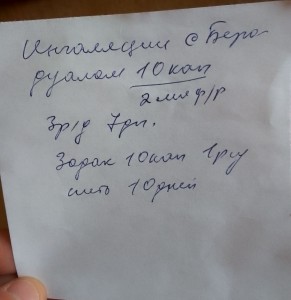 Ингаляции с Беро
дуалом 10 кап
2 мл ф/р
3р/д 7дн.
Зодак 10кап 1р/д
пить 10 дней